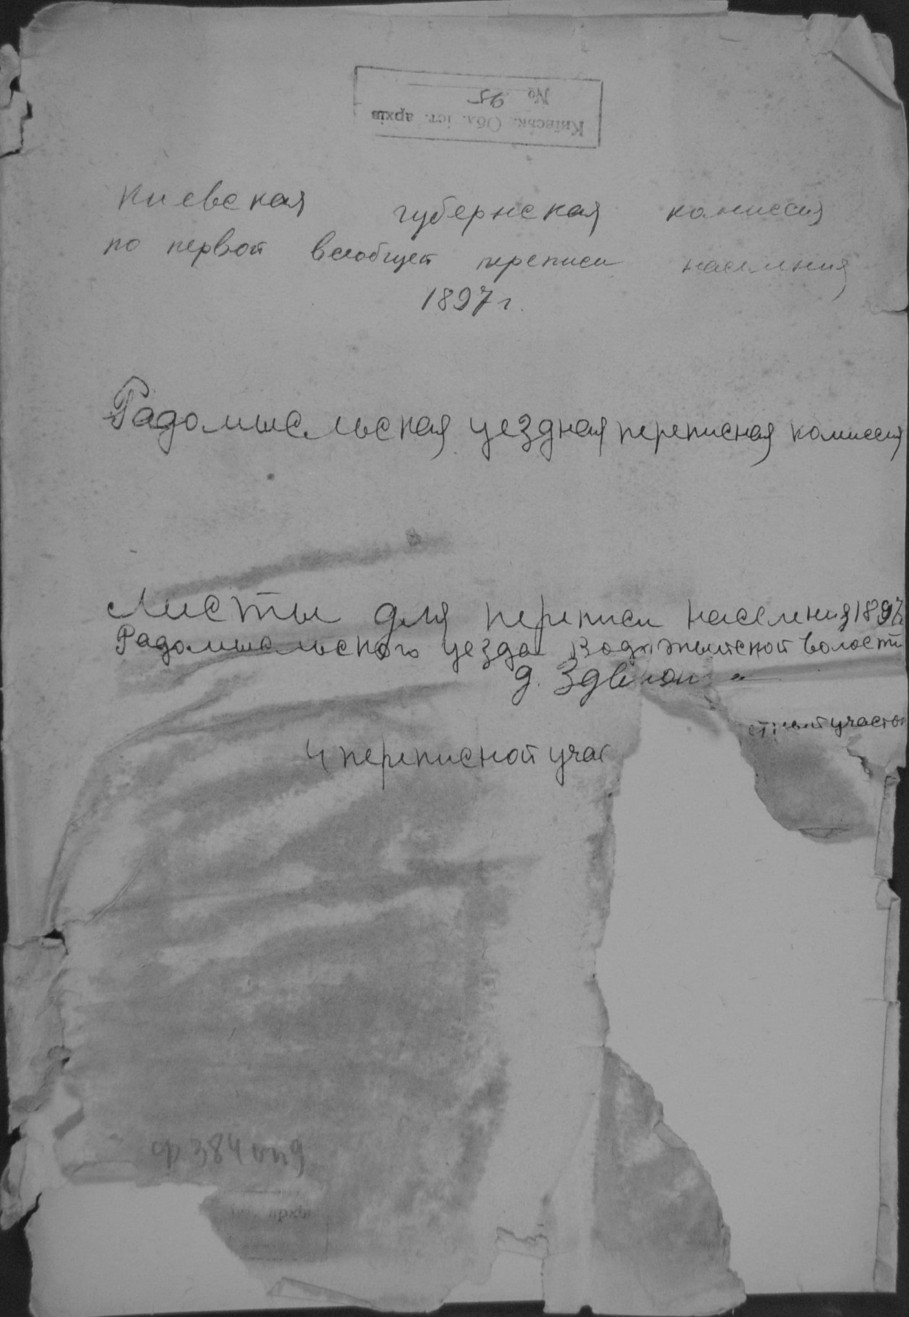 Київськ. Обл. іст. архів
№ 95
Киевская губернская комиссия
по первой всеобщей переписи населения
1897 г.
Радомысльская уездная переписная комиссия
Листы для переписи населения 1897
Радомысльского уезда волости
д. Здвиж
участок
4 переписной учас
ф 384 оп 9